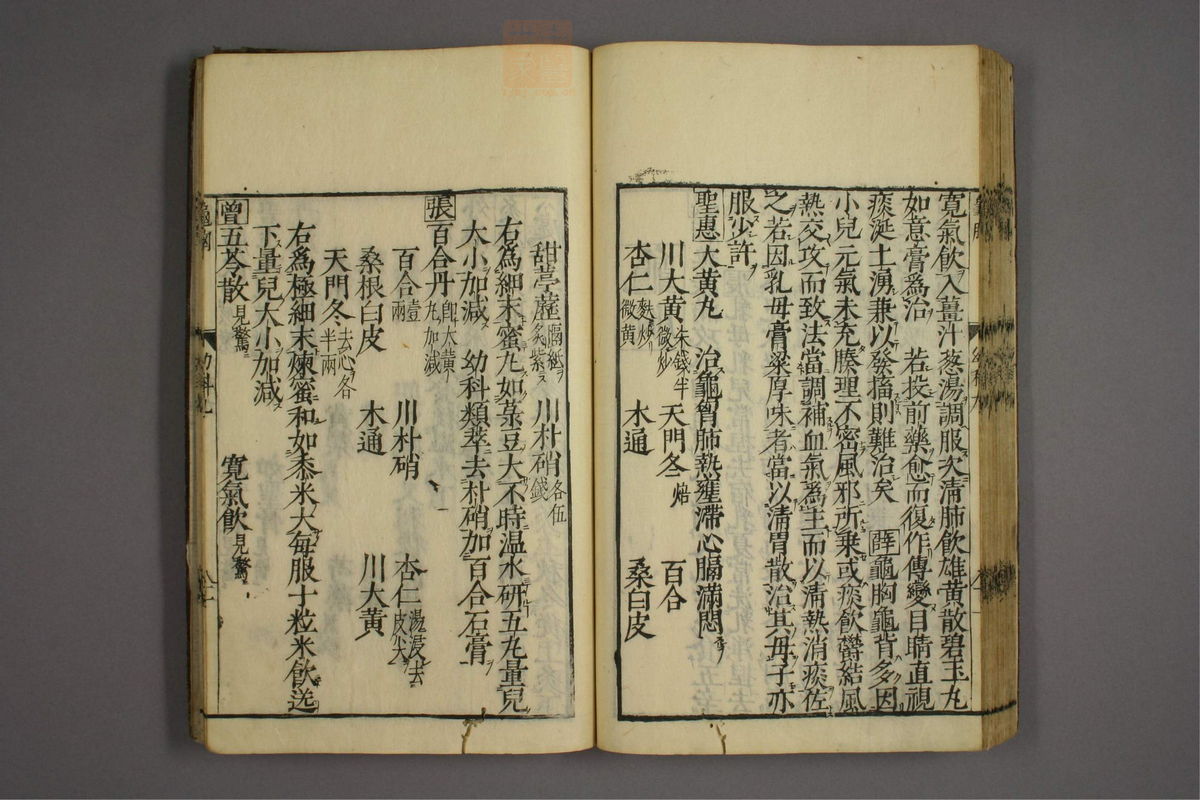 寛氣飲入薑汁葱湯調服次清肺飲雄黄散碧玉丸
如意膏爲治 若投前藥愈而復作傳變目睛直視
痰涎上湧兼以發搐則難治矣 薛 龜胸龜背多因
小兒元氣未充腠理不密風邪所乗或痰飲鬱結風
熱交攻而致法當調補血氣爲主而以清熱消痰佐
之若因乳母膏粱厚味者當以清胃散治其母子亦
服少許
聖惠 大黄丸 治龜胷肺熱壅滯心膈滿悶
川大黄 朱錢半微炒 天門冬 焙 百合
杏仁 麩炒微黄 木通 桑白皮
甜葶藶 隔紙炙紫 川朴硝 各伍錢
右爲細末蜜丸如菉豆大不時温水研五丸量兒
大小加減 幼科類萃去朴硝加百合石膏
張 百合丹 即大黄丸加減
百合 壹兩 川朴硝 杏仁 湯浸去皮尖
桑根白皮 木通 川大黄
天門冬 去心各半兩
右爲極細末煉蜜和如黍米大毎服十粒米飲送
下量兒大小加減
曾 五苓散 見驚 寛氣飲 見驚